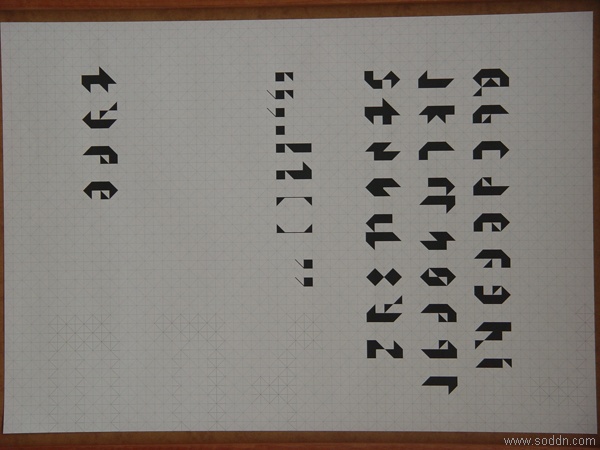 a b c d e f g h i
j k l m n o p q r
s t u v w x y z
! ? ( )
type
www.soddn.com